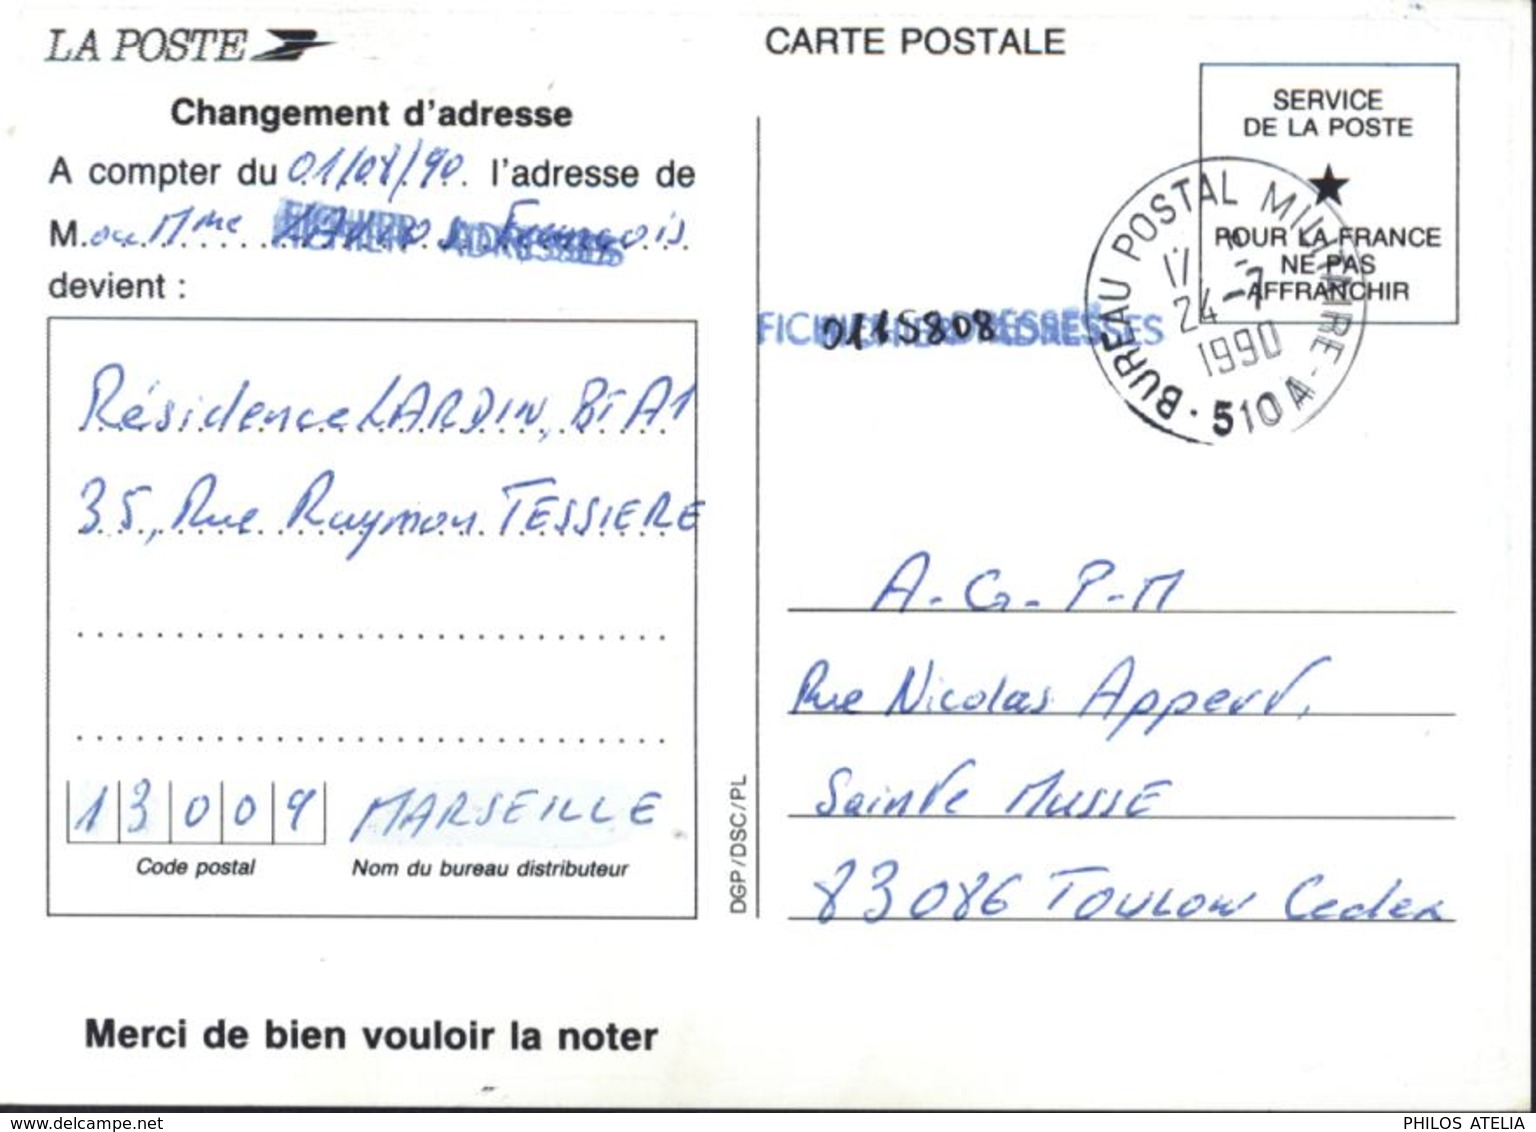 LA POSTE
Changement d'adresse
A compter du 01/08/90. l'adresse de
M. ou Mme François
devient :
Résidence LARDIN, Bt A1
35, Rue Raymon TESSIERE
13009 MARSEILLE
Code postal Nom du bureau distributeur
Merci de bien vouloir la noter
DGP/DSC/PL
CARTE POSTALE
SERVICE
DE LA POSTE
POUR LA FRANCE
NE PAS
AFFRANCHIR
BUREAU POSTAL MILITAIRE - 510 A
17 H
24-7
1990
FICHIER ADRESSES
0115808
A-G-P-M
Rue Nicolas Appert,
Sainte Musse
83086 TOULON Cedex
delcampe.net
PHILOS ATELIA